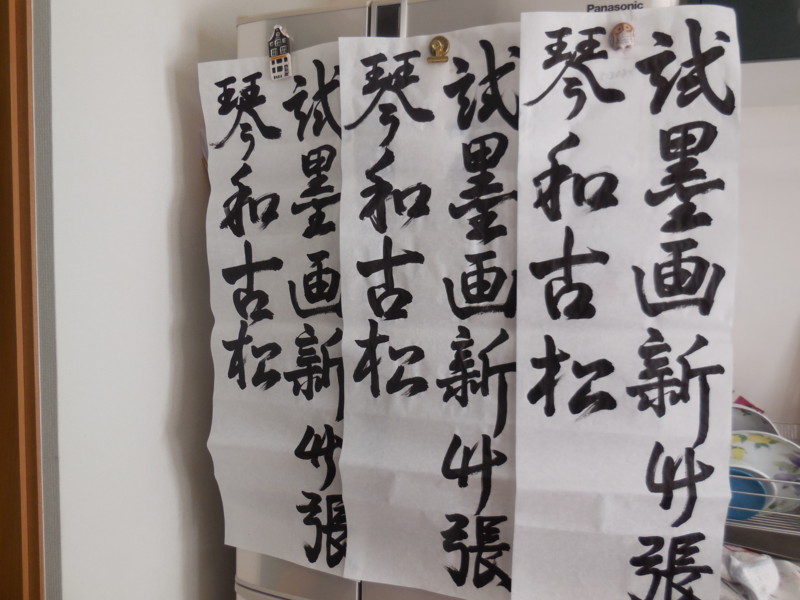 Panasonic
試墨画新竹張
琴和古松
試墨画新竹張
琴和古松
試墨画新竹張
琴和古松